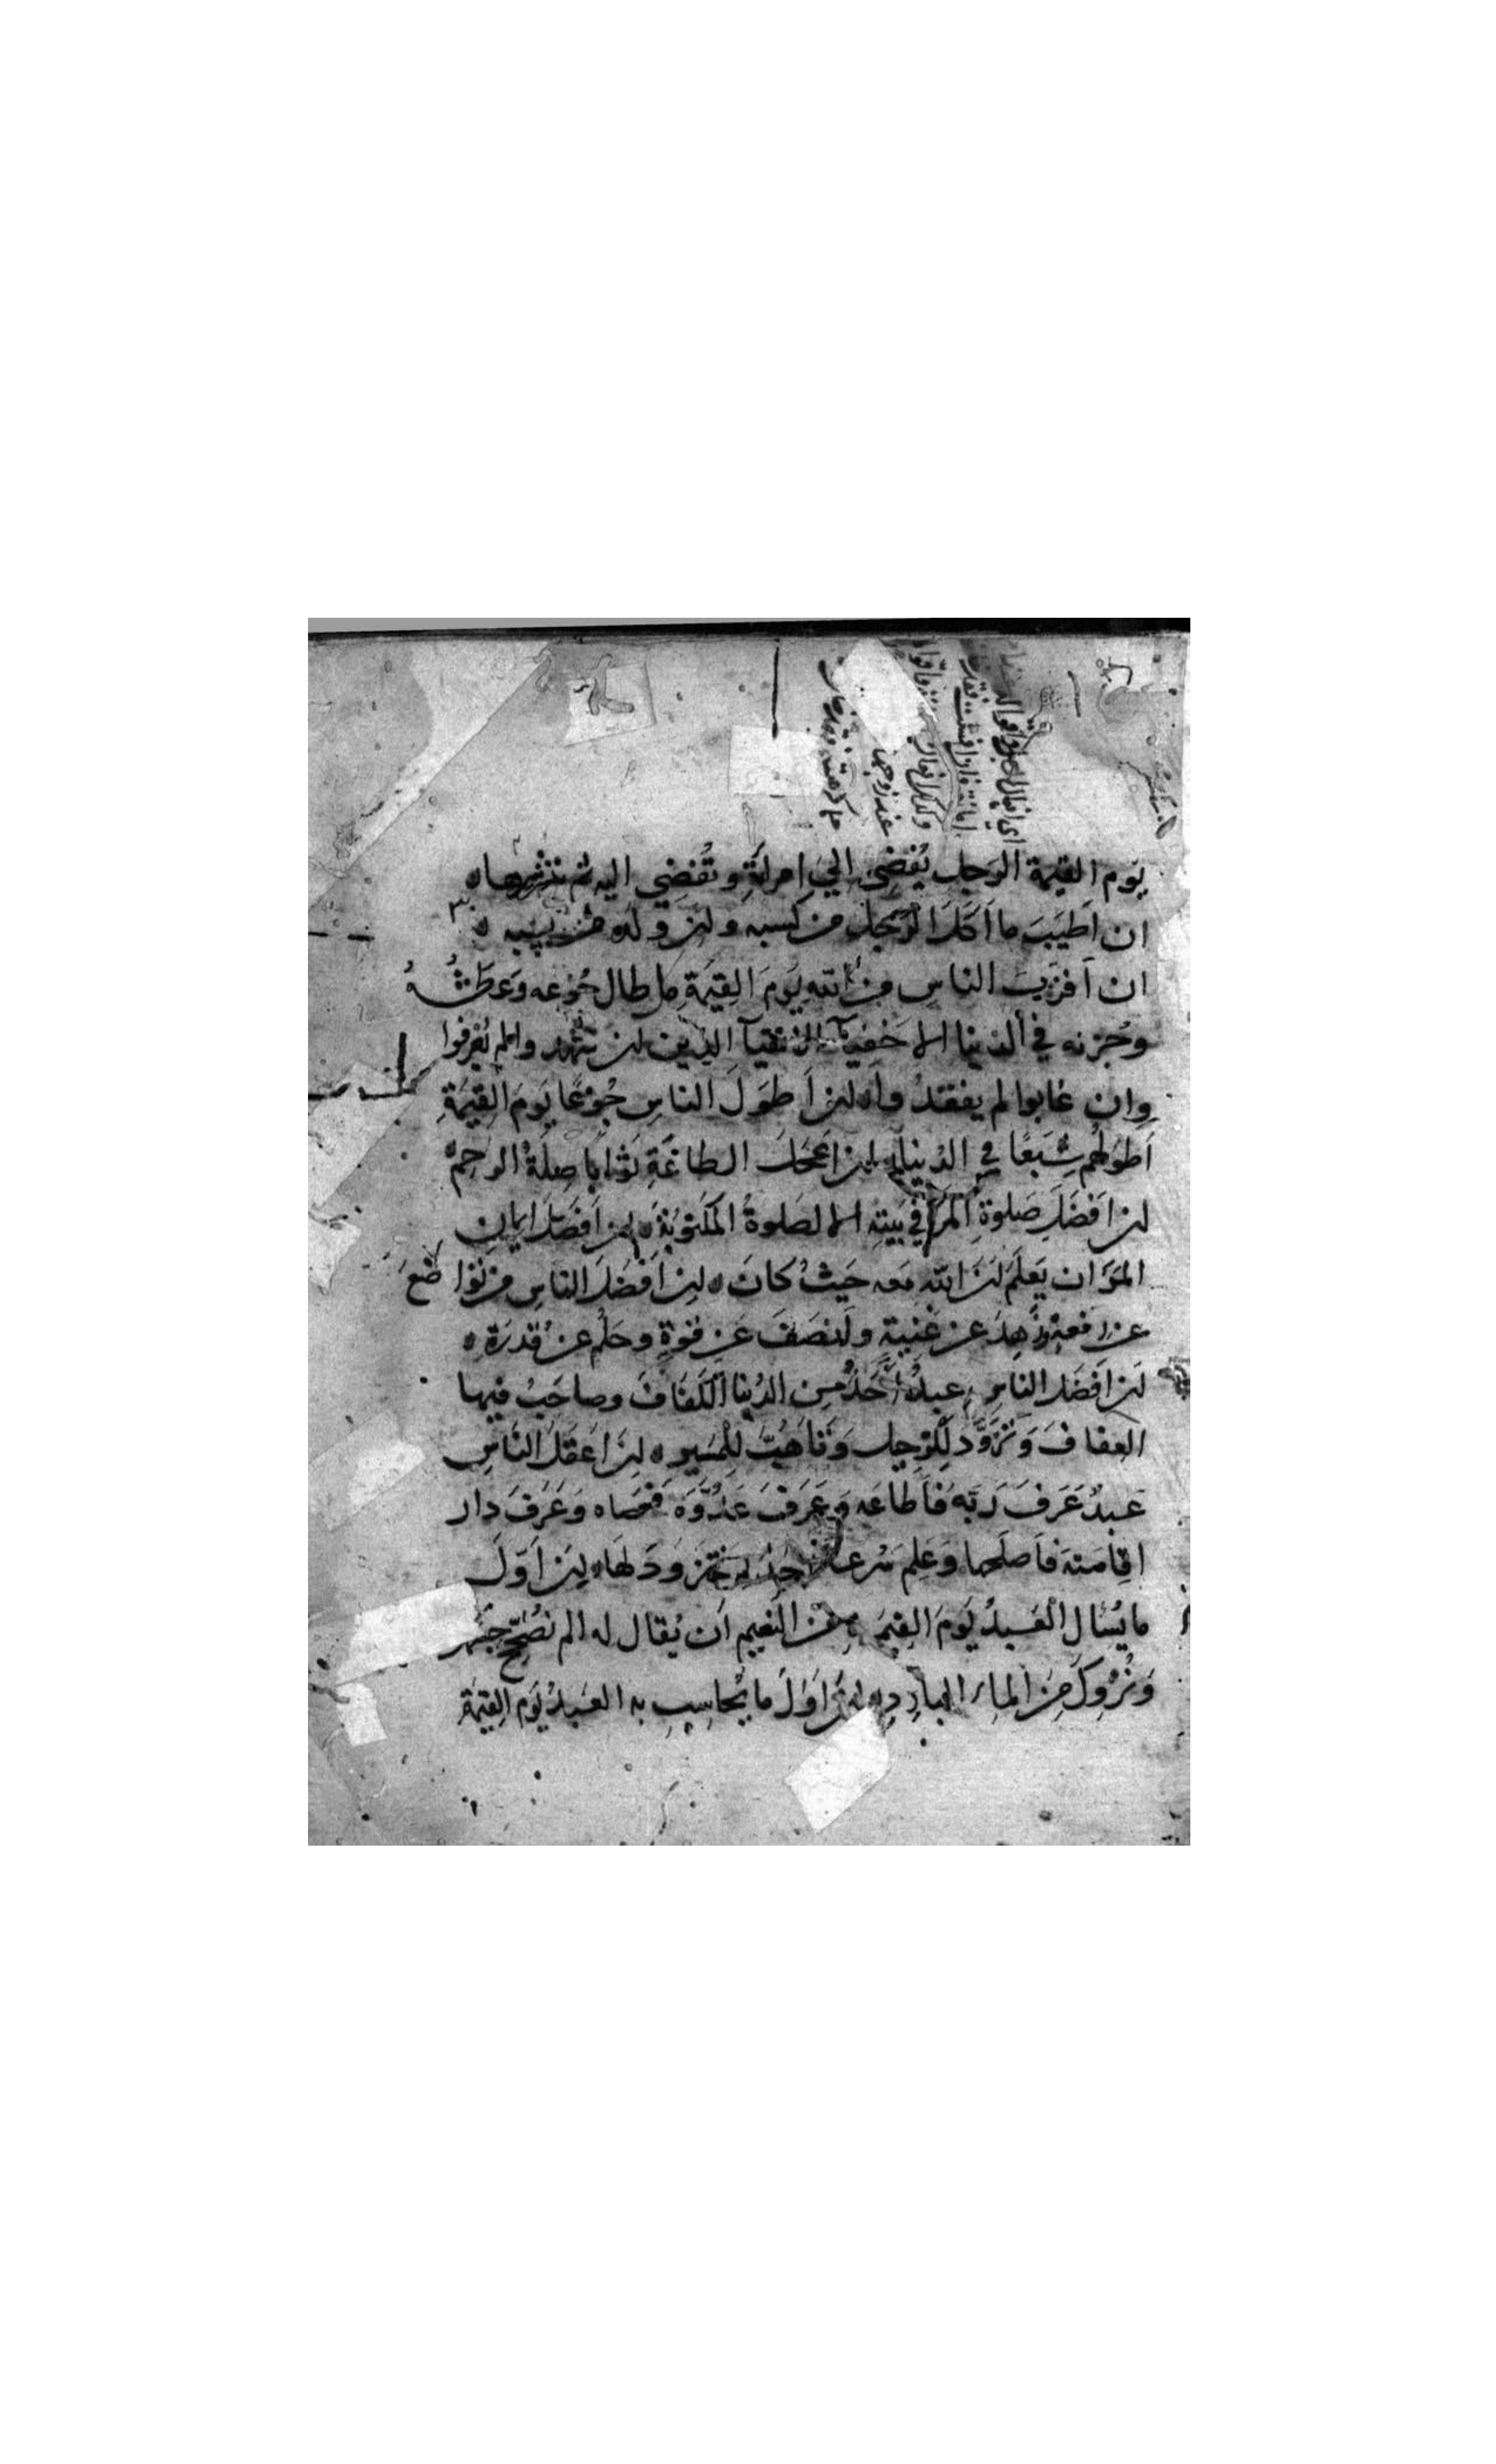 يَوم القيمة الرَجل يُفضِي الي امرأةٍ وتُفضِي اليه ثم ينشر سرها ه
ان اَطيَبَ ما اَكَلَ الرَجل من كسبه وان ولده من كسبه ه
ان اَقرَبَ الناس من الله يَومَ القِيٰمَةِ من طال جُوعه وَعَطَشُهُ
وحُزنه في الدنيا الاَخفِيآء الاتقيآ الذين ان شهدوا لم يُعْرفوا
وان غابوا لم يفقدوا ه ان اَطوَلَ الناسِ جُوعًا يَومَ القِيٰمَةِ
اَطوَلُهُم شِبَعًا في الدُنيا ه ان اَعجَلَ الطاعَةِ ثَوَابًا صِلَةُ الرحِم ه
ان اَفضَلَ صَلوةِ المَرءِ في بَيتِه الا الصَلوةُ المَكتوبَةَ ه ان اَفضَلَ ايمانِ
المَرءِ ان يَعلَمَ اَنَ الله مَعه حَيثُ كانَ ه ان اَفضَلَ الناسِ من تواضَعَ
عن رفعةٍ وزَهِدَ عن غُنيةٍ واَنصَفَ عَن قوةٍ وحَلُم عن قُدرَةٍ ه
ان اَفضَل الناسِ عبدٌ اَخَذَ من الدُنيا الكَفَافَ وصاحَبَ فيها
العفافَ وَتَزَوَّدَ لِلرَحِيل وَتَاَهَّبَ لِلمَسِير ه ان اَعقَلَ النَّاسِ
عَبدٌ عَرَفَ رَبّه فَاَطاعَه وَعَرَفَ عَدُوَّه فعَصَاه وَعَرَفَ دار
اقِامَته فَاَصلَحها وَعَلِم سُرعة رحلته فتزودَ لهَا ه ان اَوّلَ
ما يُسْأَل العَبدُ يَومَ القِيمَةِ عن النَعيم اَن يُقال له الم نُصِحَّ جِسْمَكَ
وَنُرْوِكَ مِنَ المِاءِ البارِدِ ه ان اَوَلَ ما يُحاسِب به العَبدُ يَوم القِيٰمَة